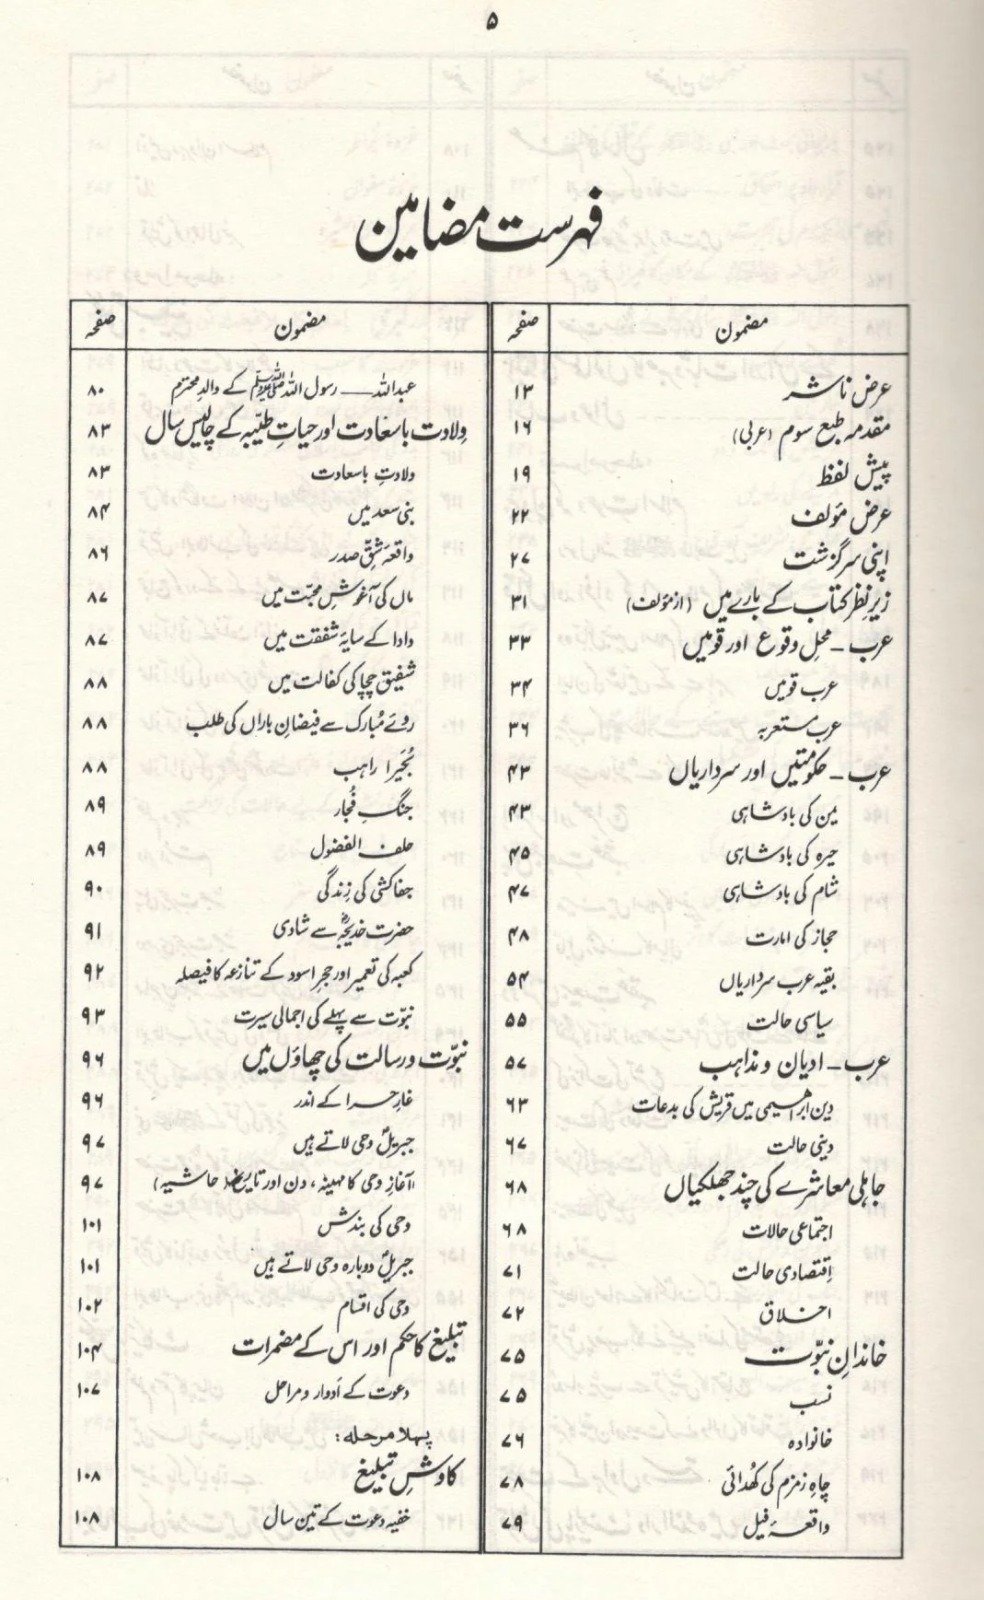 ۵
فہرست مضامین
مضمون صفحہ
عرض ناشر ۱۳
مقدمہ طبع سوم (عربی) ۱۶
پیش لفظ ۱۹
عرض مؤلف ۲۲
اپنی سرگزشت ۲۷
زیرِ نظر کتاب کے بارے میں (از مؤلف) ۳۱
عرب - محلِ وقوع اور قومیں ۳۳
عرب قومیں ۳۴
عرب مستعربہ ۳۶
عرب - حکومتیں اور سرداریاں ۴۳
یمن کی بادشاہی ۴۳
حیرہ کی بادشاہی ۴۵
شام کی بادشاہی ۴۷
حجاز کی امارت ۴۸
بقیہ عرب سرداریاں ۵۴
سیاسی حالت ۵۵
عرب - ادیان و مذاہب ۵۷
دین ابراہیمی میں قریش کی بدعات ۶۳
دینی حالت ۶۷
جاہلی معاشرے کی چند جھلکیاں ۶۸
اجتماعی حالات ۶۸
اقتصادی حالت ۷۱
اخلاق ۷۲
خاندانِ نبوّت ۷۵
نسب ۷۵
خانوادہ ۷۶
چاہِ زمزم کی کھُدائی ۷۸
واقعۂ فیل ۷۹
مضمون صفحہ
عبداللہ ـــ رسول اللہ ﷺ کے والدِ محترم ۸۰
ولادت باسعادت اور حیاتِ طیّبہ کے چالیس سال ۸۳
ولادتِ باسعادت ۸۳
بنی سعد میں ۸۴
واقعہ شقِّ صدر ۸۶
ماں کی آغوشِ محبّت میں ۸۷
دادا کے سایۂ شفقت میں ۸۷
شفیق چچا کی کفالت میں ۸۸
روئے مُبارک سے فیضانِ باراں کی طلب ۸۸
بُحَیرا راہب ۸۸
جنگِ فُجار ۸۹
حلف الفضول ۸۹
جفاکشی کی زِندگی ۹۰
حضرت خدیجہؓ سے شادی ۹۱
کعبہ کی تعمیر اور حجرِ اسود کے تنازعہ کا فیصلہ ۹۲
نبوّت سے پہلے کی اجمالی سیرت ۹۳
نبوّت و رسالت کی چھاؤں میں ۹۶
غارِ حرا کے اندر ۹۶
جبریلؑ وحی لاتے ہیں ۹۷
آغازِ وحی کا مہینہ، دن اور تاریخ (حاشیہ) ۹۷
وحی کی بندش ۱۰۱
جبریلؑ دوبارہ وحی لاتے ہیں ۱۰۱
وحی کی اقسام ۱۰۲
تبلیغ کا حکم اور اس کے مضمرات ۱۰۴
دعوت کے اَدوار و مراحل ۱۰۷
پہلا مرحلہ:
کاوشِ تبلیغ ۱۰۸
خفیہ دعوت کے تین سال ۱۰۸